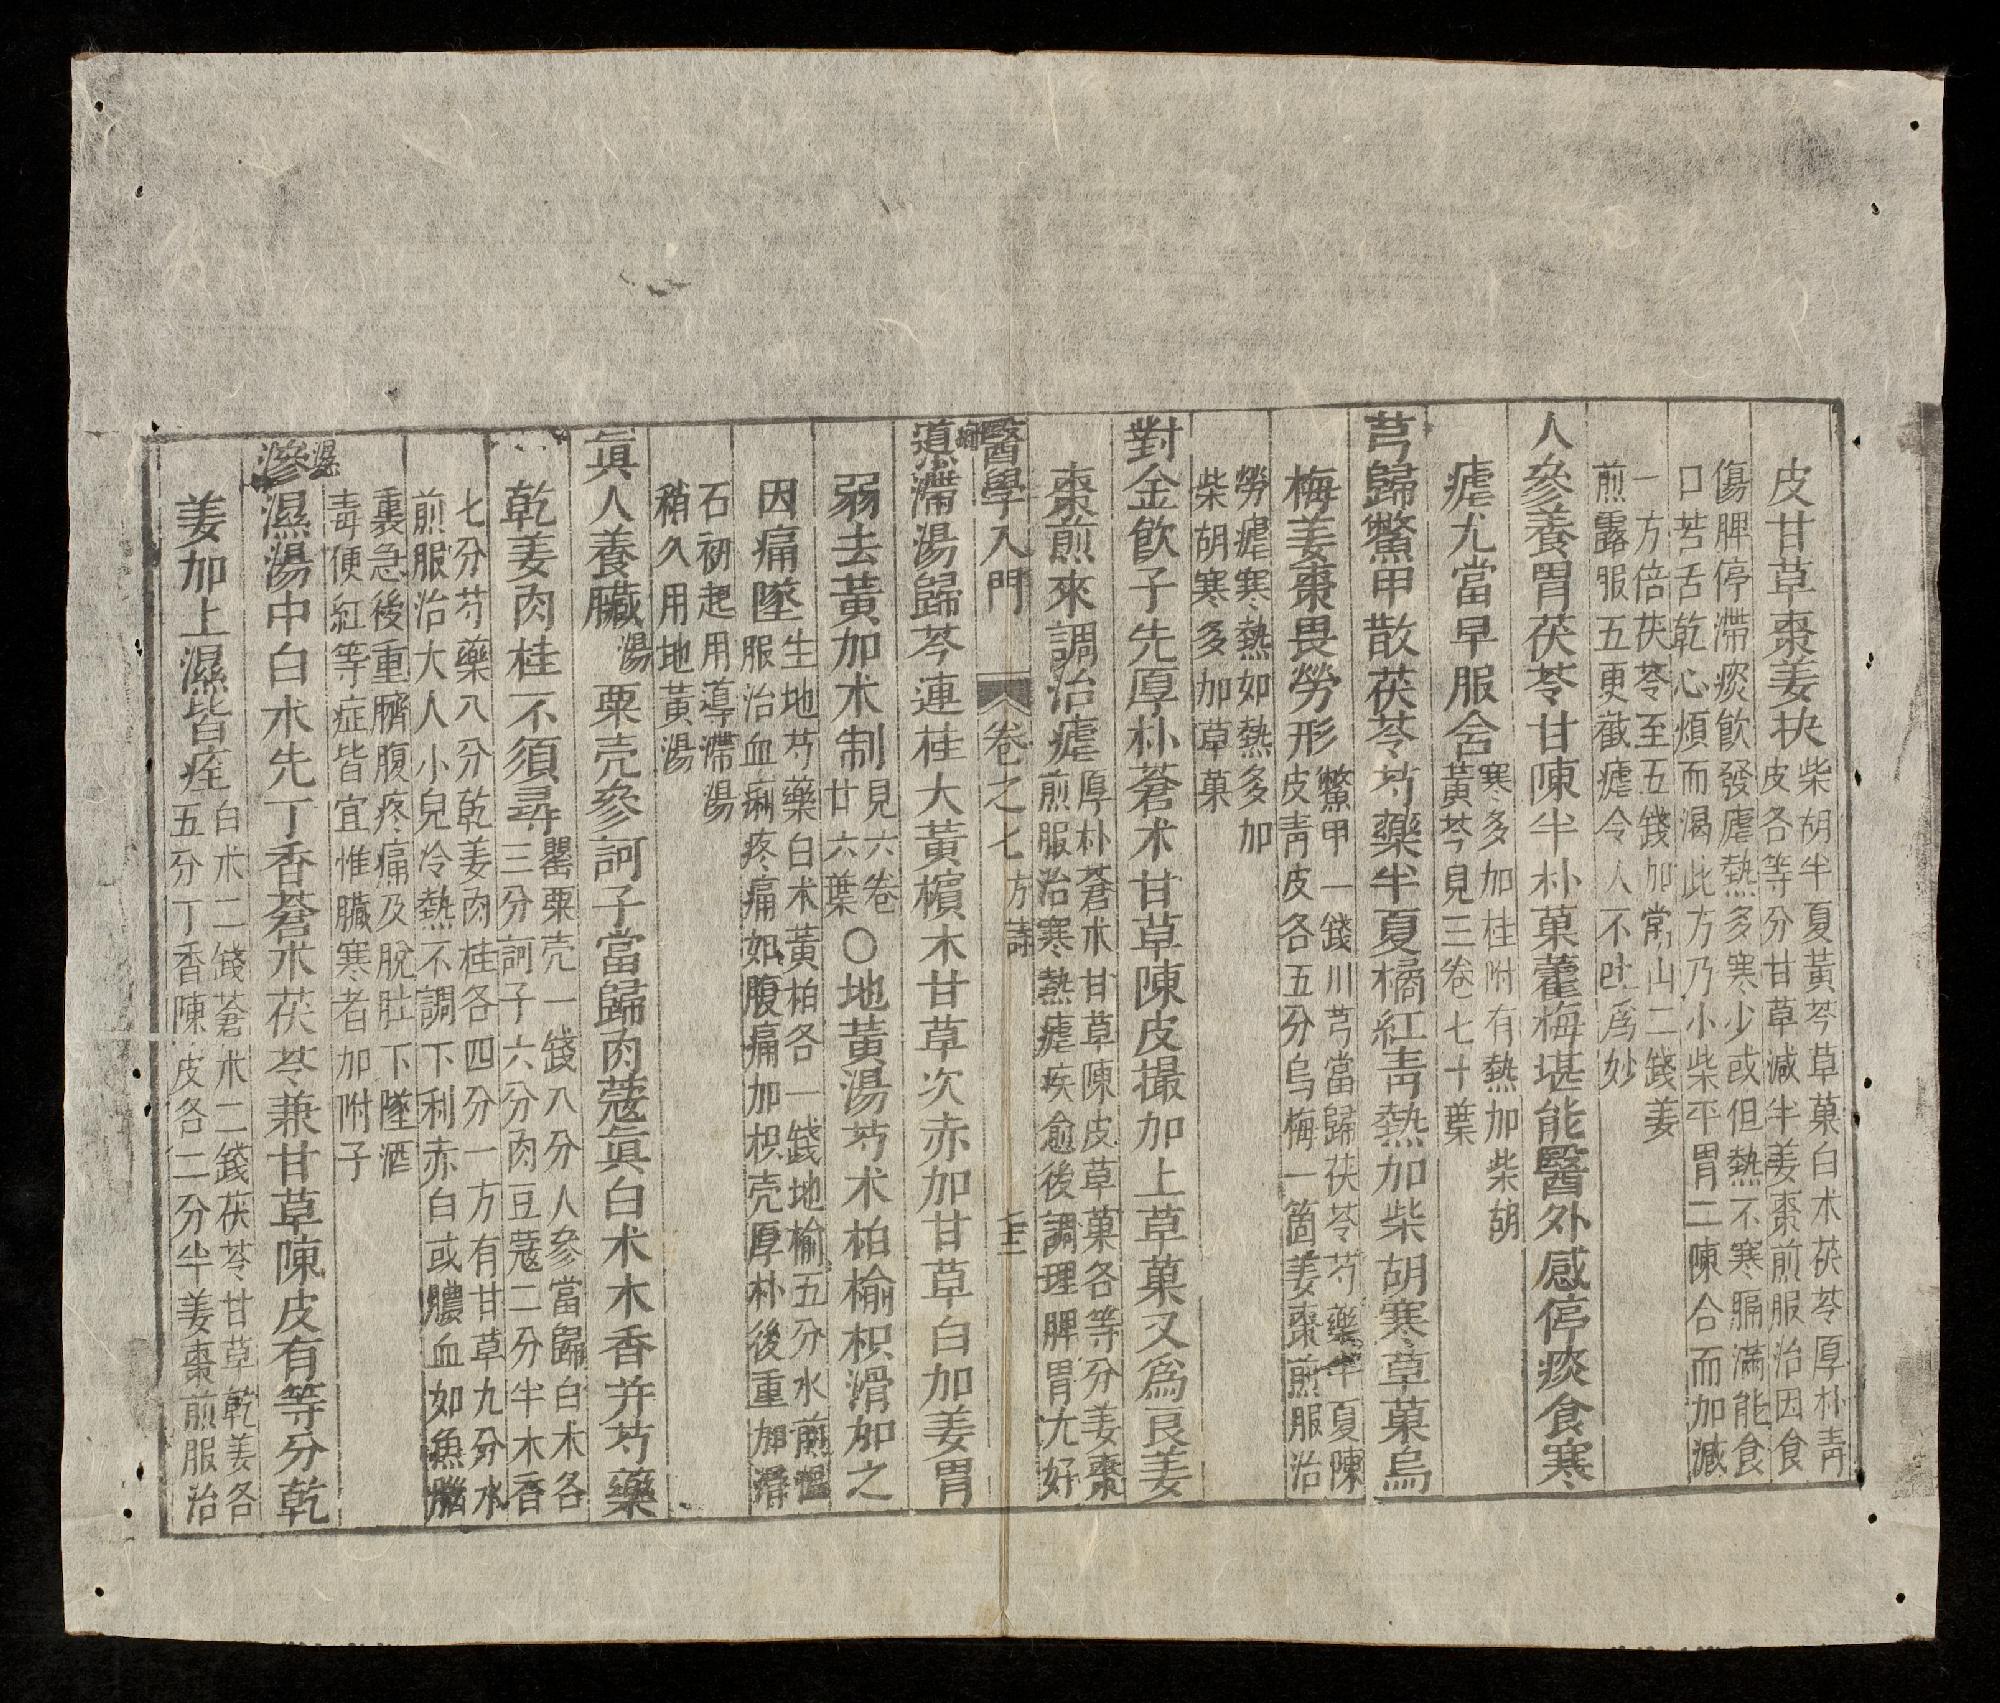 皮甘草棗姜抉
柴胡半夏黃芩草菓白朮茯苓厚朴靑
皮各等分甘草減半姜棗煎服治因食
傷脾停滯痰飮發瘧熱多寒少或但熱不寒膈滿能食
口苦舌乾心煩而渴此方乃小柴平胃二陳合而加減
一方倍茯苓至五錢加常山二錢姜
煎露服五更截瘧令人不吐爲妙
人參養胃茯苓甘陳半朴菓藿梅堪能醫外感停痰食寒
瘧尤當早服含
寒多加桂附有熱加柴胡
黃芩見三卷七十葉
芎歸鱉甲散茯苓芍藥半夏橘紅靑熱加柴胡寒草菓烏
梅姜棗畏勞形
鱉甲一錢川芎當歸茯苓芍藥半夏陳
皮靑皮各五分烏梅一箇姜棗煎服治
勞瘧寒熱如熱多加
柴胡寒多加草菓
對金飮子先厚朴蒼朮甘草陳皮撮加上草菓又爲良姜
棗煎來調治瘧
厚朴蒼朮甘草陳皮草菓各等分姜棗
煎服治寒熱瘧疾愈後調理脾胃尤好
醫學入門
卷之七
方詩
導滯湯歸芩連桂大黃檳木甘草次赤加甘草白加姜胃
弱去黃加朮制
見六卷
廿六葉
○地黃湯芍朮柏榆枳滑加之
因痛墜
生地芍藥白朮黃柏各一錢地榆五分水煎溫
服治血痢疼痛如腹痛加枳壳厚朴後重加滑
石初起用導滯湯
稍久用地黃湯
眞人養臟
湯
粟壳參訶子當歸肉蔻眞白朮木香并芍藥
乾姜肉桂不須尋
罌粟壳一錢八分人參當歸白朮各
三分訶子六分肉豆蔻二分半木香
七分芍藥八分乾姜肉桂各四分一方有甘草九分水
煎服治大人小兒冷熱不調下利赤白或膿血如魚腦
裏急後重臍腹疼痛及脫肚下墜酒
毒便紅等症皆宜惟臟寒者加附子
濕
滲濕湯中白朮先丁香蒼朮茯苓兼甘草陳皮有等分乾
姜加上濕皆痊
白朮二錢蒼朮二錢茯苓甘草乾姜各
五分丁香陳皮各二分半姜棗煎服治